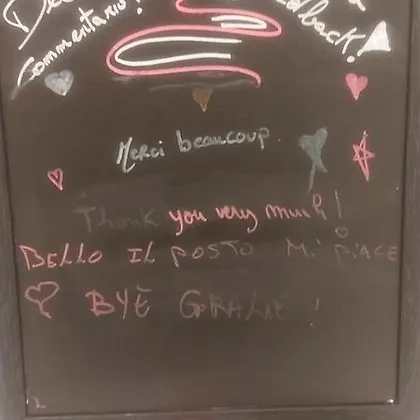 commentario!
Merci beaucoup
Thank you very much!
BELLO IL POSTO MI PIACE
BYE GRAZIE!